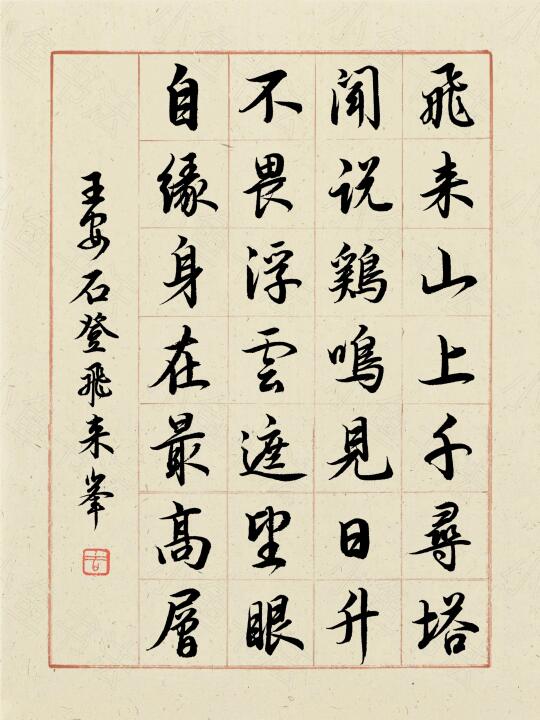 飛来山上千尋塔
聞説鷄鳴見日升
不畏浮雲遮望眼
自緣身在最高層
王安石登飛来峯